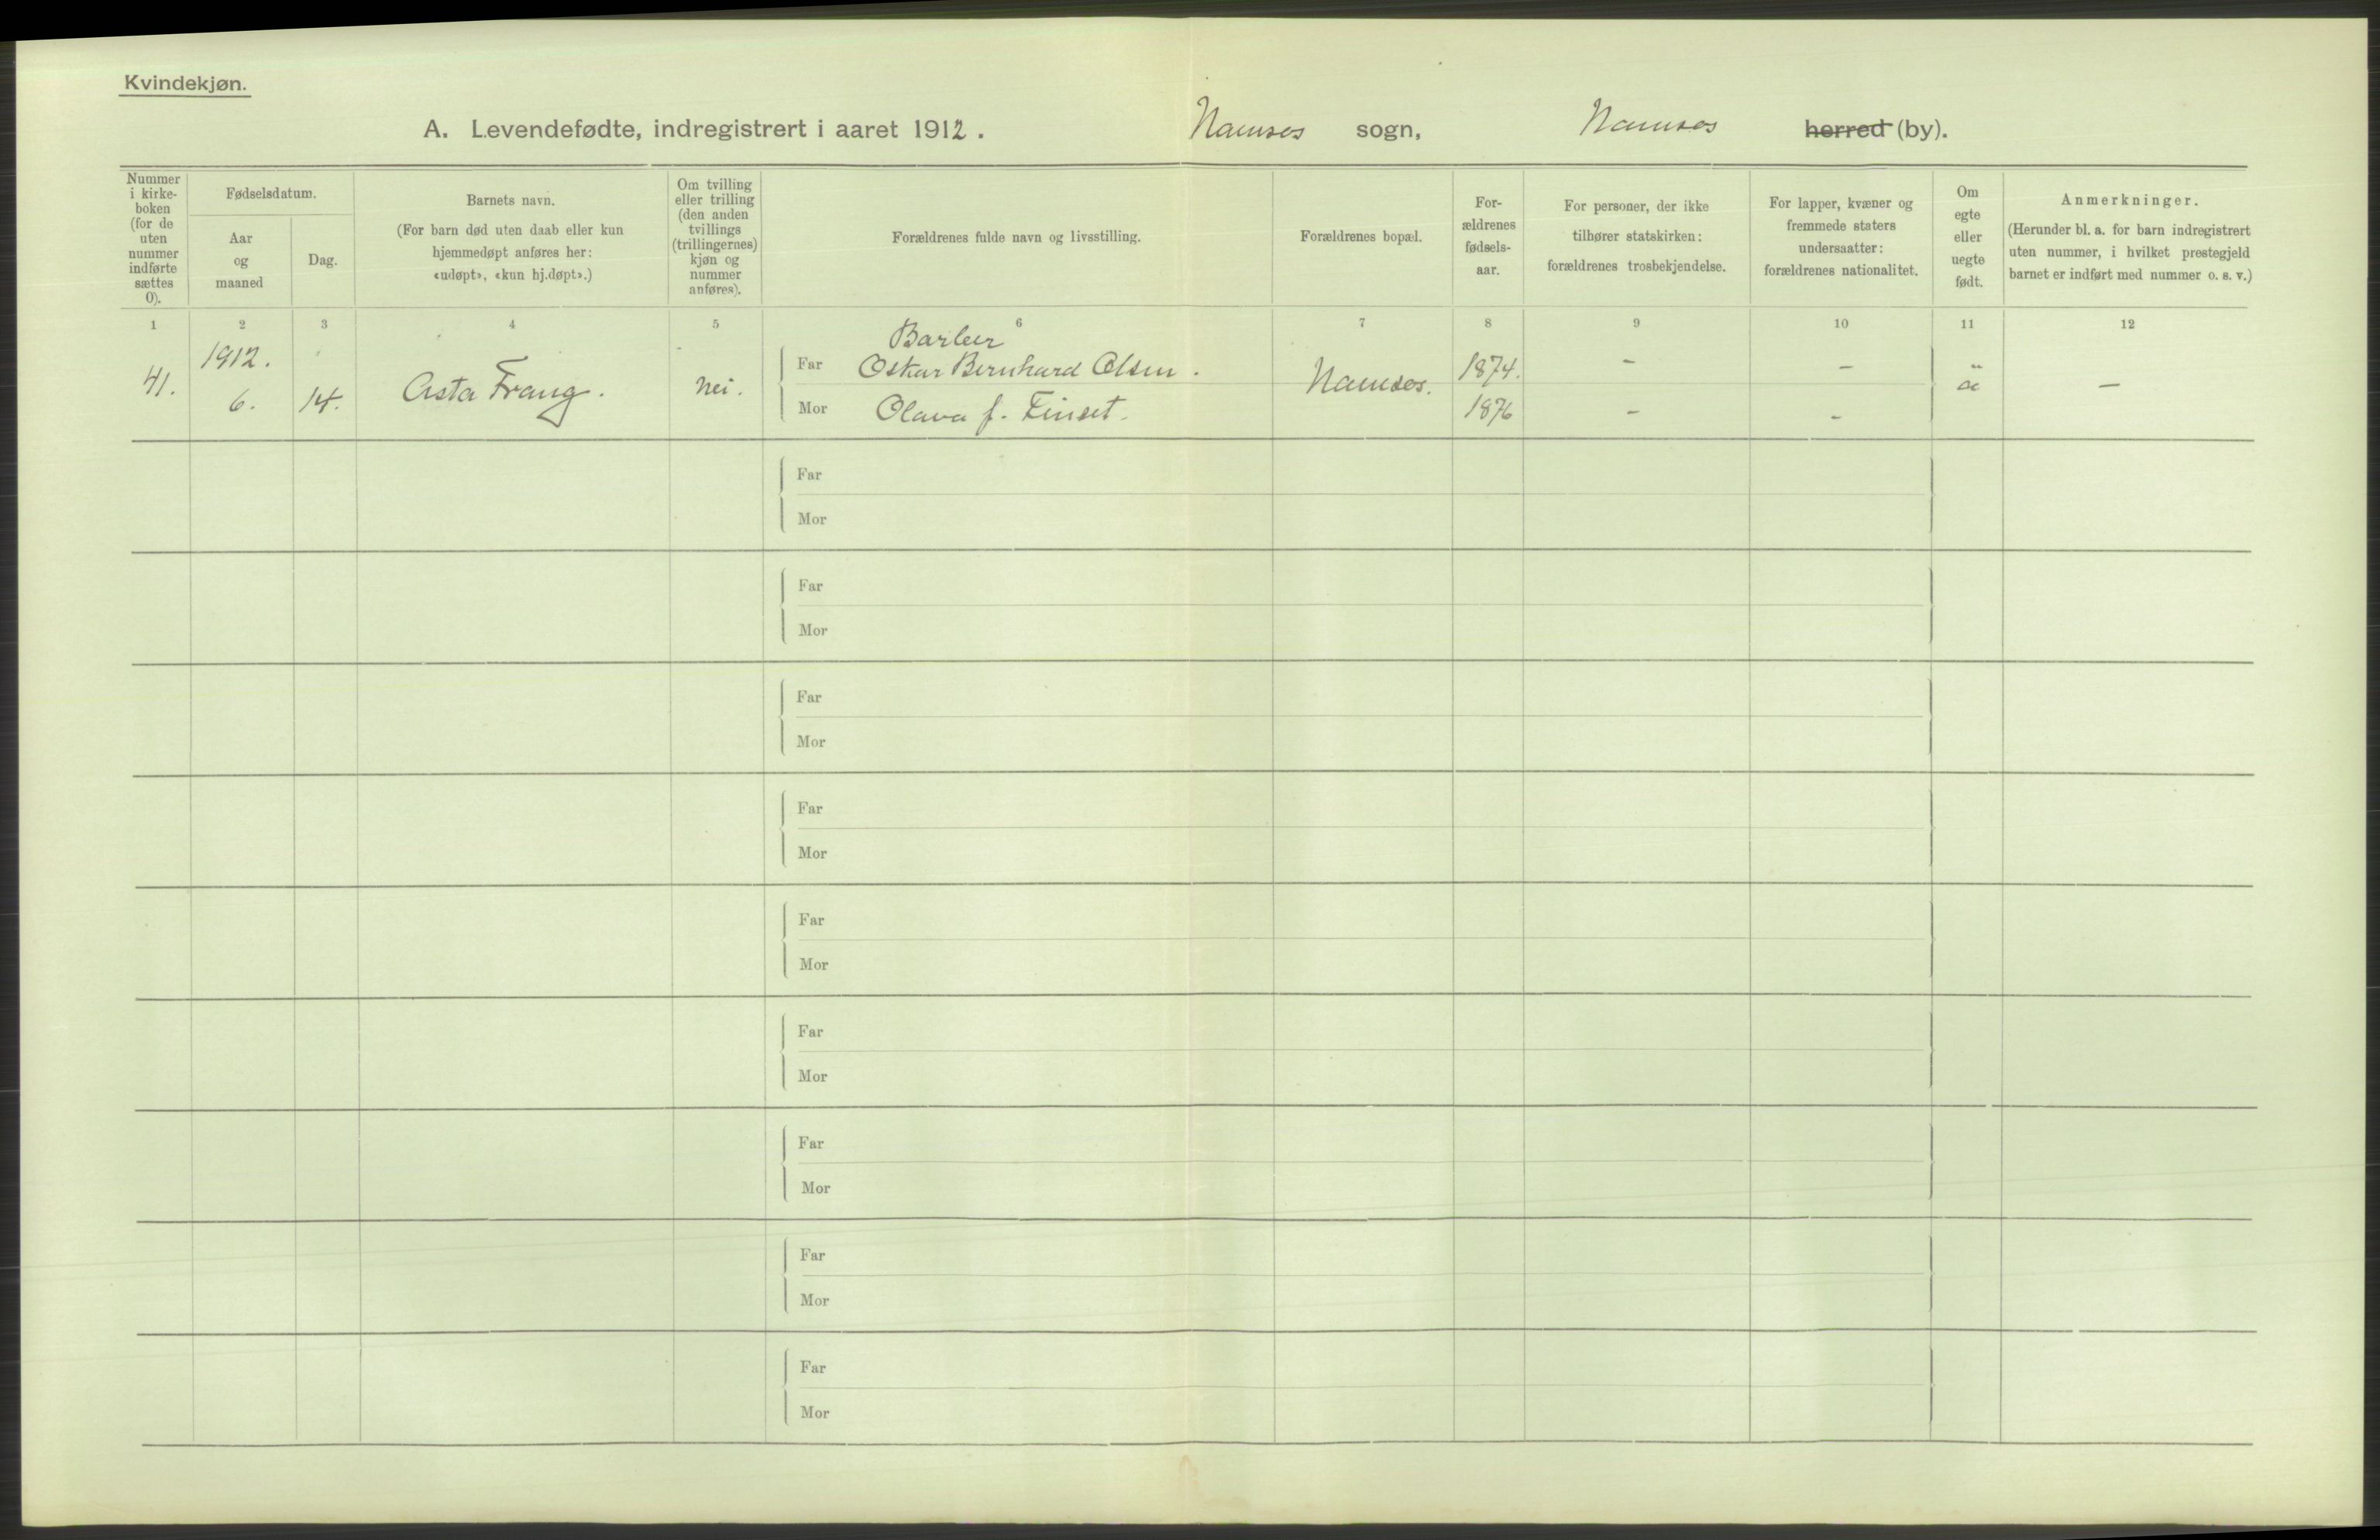 Kvindekjøn.
A. Levendefødte, indregistrert i aaret 1912. Namsos sogn, Namsos herred (by).
Nummer i kirke-boken (for de uten nummer indførte sættes 0).
Fødselsdatum.
Aar og maaned
Dag.
Barnets navn.
(For barn død uten daab eller kun hjemmedøpt anføres her: «udøpt», «kun hj.døpt».)
Om tvilling eller trilling (den anden tvillings (trillingernes) kjøn og nummer anføres).
Forældrenes fulde navn og livsstilling.
Forældrenes bopæl.
For-ældrenes fødsels-aar.
For personer, der ikke tilhører statskirken: forældrenes trosbekjendelse.
For lapper, kvæner og fremmede staters undersaatter: forældrenes nationalitet.
Om egte eller uegte født.
Anmerkninger.
(Herunder bl. a. for barn indregistrert uten nummer, i hvilket prestegjeld barnet er indført med nummer o. s. v.)
1 2 3 4 5 6 7 8 9 10 11 12
41. 1912. 6. 14. Asta Frang. Nei.
Barber
Far Oskar Bernhard Olsen. Namsos. 1874. - - - 
Mor Olava f. Finset. 1876 - -
Far
Mor
Far
Mor
Far
Mor
Far
Mor
Far
Mor
Far
Mor
Far
Mor
Far
Mor
Far
Mor